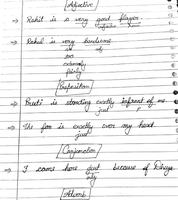 Adjective
⇒ Rohit is a very good player.
Adjective Noun
⇒ Rahul is very handsome
so
too
extremely
fairly
Preposition
⇒ Preeti is standing exactly infront of me.
just
⇒ The fan is exactly over my head.
just
Conjunction
⇒ I came here just because of
only
Adverb